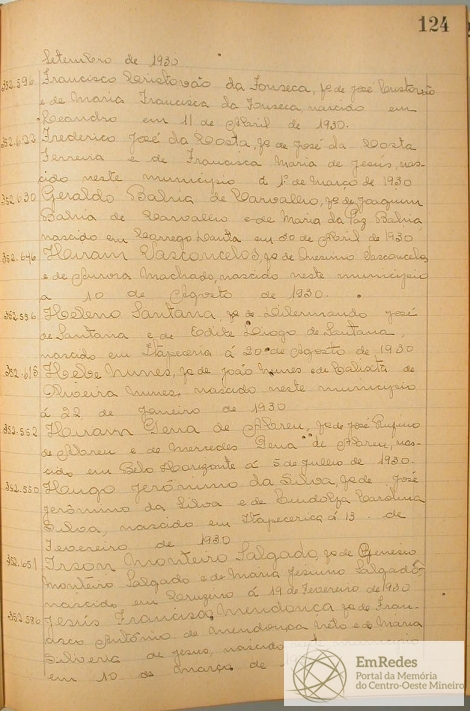 124
Setembro de 1930
352.596 Francisco Cristovão da Fonseca, fº de José Cristovão
e de Maria Francisca da Fonseca, nascido em
Leandro em 11 de Abril de 1930.
352.622 Frederico José da Costa, fº de José da Costa
Ferreira e de Francisca Maria de Jesus, nas-
cido neste municipio á 1º de Março de 1930
352.630 Geraldo Bahia de Carvalho, fº de Joaquim
Bahia de Carvalho e de Maria da Paz Bahia
nascido em Corrego Danta em 30 de Abril de 1930
352.646 Hiram Vasconcelos, fº de Vasconcelos
e de Aurora Machado, nascido neste municipio
a 10 de Agosto de 1930.
Heleno Santana, fº de José
de Santana e de Edite de Santana,
nascido em Itapecerica á 20 de Agosto de 1930
Nunes, fº de João Nunes e de de
Oliveira Nunes, nascido neste municipio
á 22 de Janeiro de 1930
352.562 Hiram de Abreu, fº de José
de Abreu e de Mercedes de Abreu, nas-
cido em Belo Horizonte á 5 de Julho de 1930.
352.550 Hugo Jerônimo da Silva, fº de José
Jerônimo da Silva e de Carolina
Silva, nascido em Itapecerica á 13 de
Fevereiro de 1930
352.651 Monteiro Salgado, fº de
Monteiro Salgado e de Maria Salgado
nascido em á 19 de Fevereiro de 1930
Jesús Francisco Mendonça fº de Fran-
cisco Antônio de Mendonça Neto e de Maria
de Jesus, nascido
em 10 de Março de
EmRedes
Portal da Memória
do Centro-Oeste Mineiro